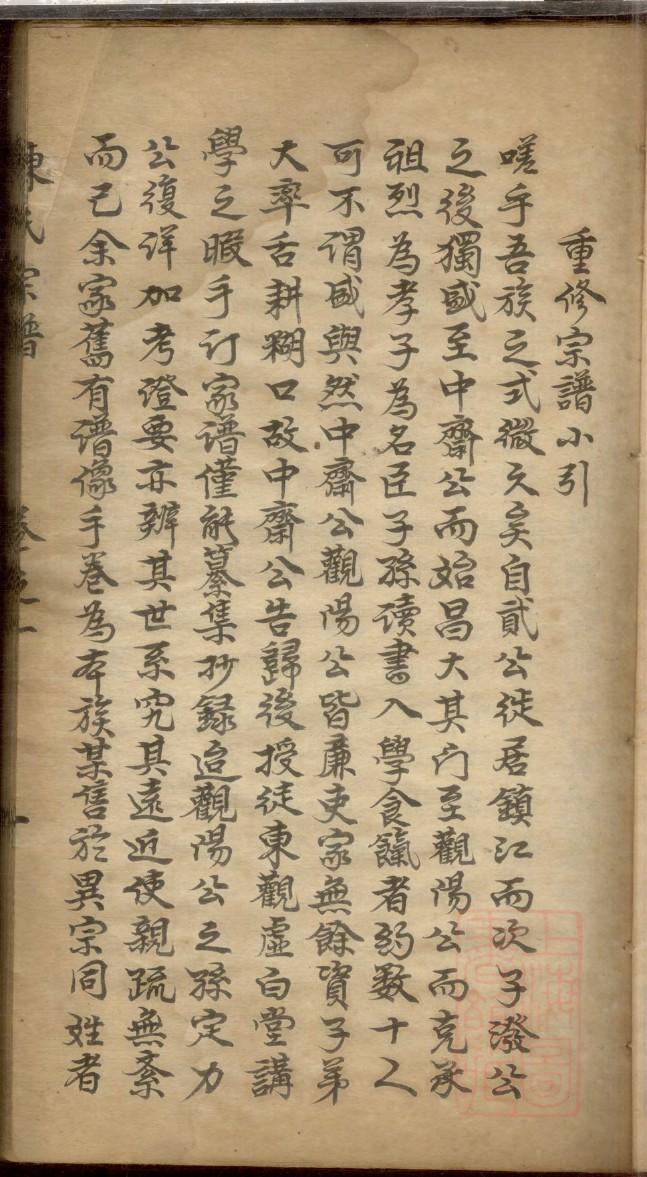 重修宗譜小引
嗟乎吾族之式微久矣自貳公徙居鎮江而次子潑公
之後獨盛至中齋公而始昌大其门至觀陽公而克承
祖烈為孝子為名臣子孫讀書入學食餼者約數十人
可不謂盛與然中齋公觀陽公皆廉吏家無餘資子弟
大率舌耕糊口故中齋公告歸後授徒東觀虛白堂講
學之暇手訂家譜僅能纂集抄録迨觀陽公之孫定力
公復詳加考證要亦辨其世系究其遠近使親疏無紊
而已余家舊有譜像手卷為本族某售於異宗同姓者
陳氏宗譜 卷之一